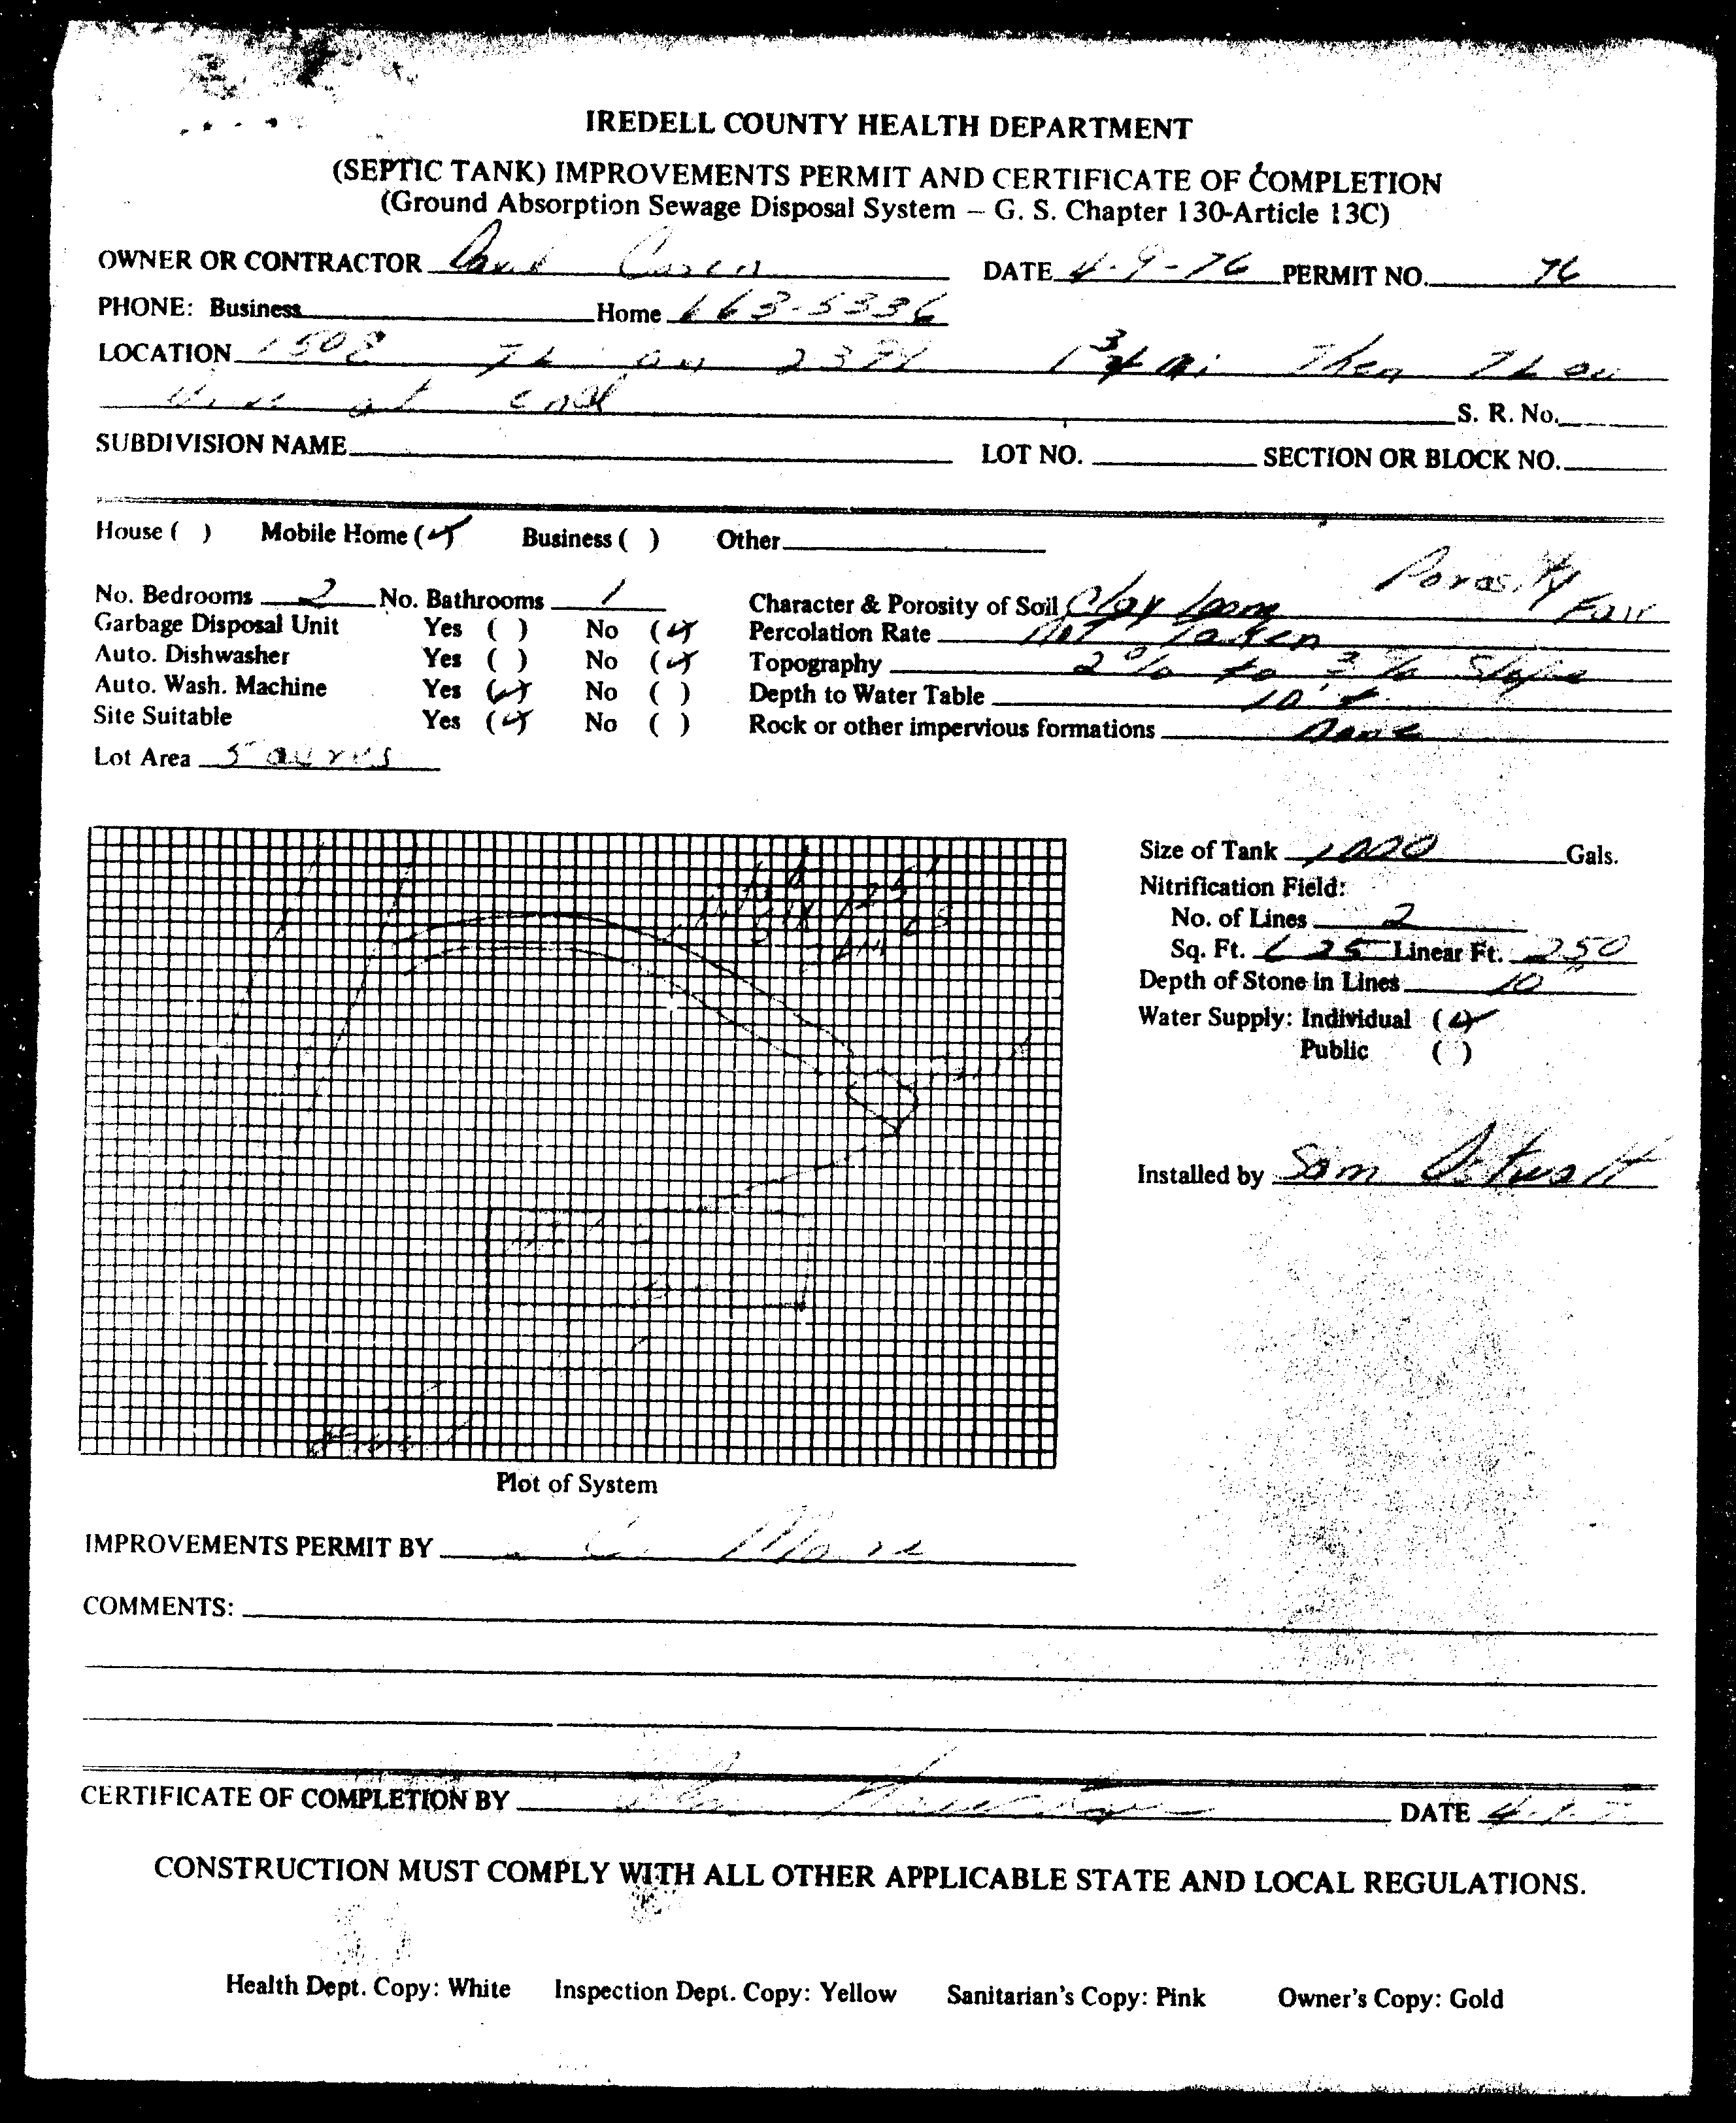 IREDELL COUNTY HEALTH DEPARTMENT
(SEPTIC TANK) IMPROVEMENTS PERMIT AND CERTIFICATE OF COMPLETION
(Ground Absorption Sewage Disposal System – G. S. Chapter 130-Article 13C)
OWNER OR CONTRACTOR DATE 4-9-76 PERMIT NO. 76
PHONE: Business Home 663-5336
LOCATION 1502 TL on 1 3/4 mi Then TL on
at end S. R. No.
SUBDIVISION NAME LOT NO. SECTION OR BLOCK NO.
House ( ) Mobile Home (✓) Business ( ) Other
Porosity
No. Bedrooms 2 No. Bathrooms 1 Character & Porosity of Soil Clay loam Fair
Garbage Disposal Unit Yes ( ) No (✓) Percolation Rate Not Taken
Auto. Dishwasher Yes ( ) No (✓) Topography 2% to 3% Slope
Auto. Wash. Machine Yes (✓) No ( ) Depth to Water Table 10' +
Site Suitable Yes (✓) No ( ) Rock or other impervious formations None
Lot Area 5 acres
Size of Tank 1000 Gals.
Nitrification Field:
No. of Lines 2
Sq. Ft. 625 Linear Ft. 250
Depth of Stone in Lines 10"
Water Supply: Individual (✓)
Public ( )
Installed by Sam Ostwalt
Plot of System
IMPROVEMENTS PERMIT BY
COMMENTS:
CERTIFICATE OF COMPLETION BY DATE
CONSTRUCTION MUST COMPLY WITH ALL OTHER APPLICABLE STATE AND LOCAL REGULATIONS.
Health Dept. Copy: White Inspection Dept. Copy: Yellow Sanitarian's Copy: Pink Owner's Copy: Gold